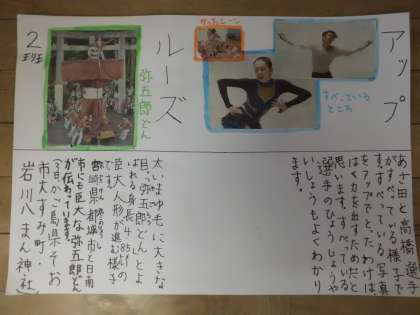 アップ
すべっている
ところ
かったシーン
ルーズ
弥五郎どん
2
班
あさ田と高橋選手
がすべっている様子で
す。すべっている写真
をアップでとったわけ
は、力を出すためだと
思います。すべっている
選手のひょうじょうや
いしょうもよくわかり
ます。
太いまゆ毛に大きな
目。「弥五郎どん」とよ
ばれる身長4.85mの
巨大人形が進む様子
です。
宮崎県都城市と日南
市にも巨大な弥五郎どん
が伝わっています。
岩川八まん神社